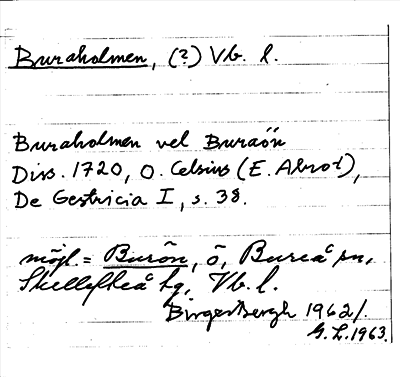 Buraholmen, (?) Vb. l.
Buraholmen vel Buraön
Diss. 1720, O. Celsius (E. Abrot),
De Gestricia I, s. 38.
möjl. = Burön, ö, Bureå sn,
Skellefteå tg, Vb. l.
Birger Bergh 1962/.
G. L. 1963.